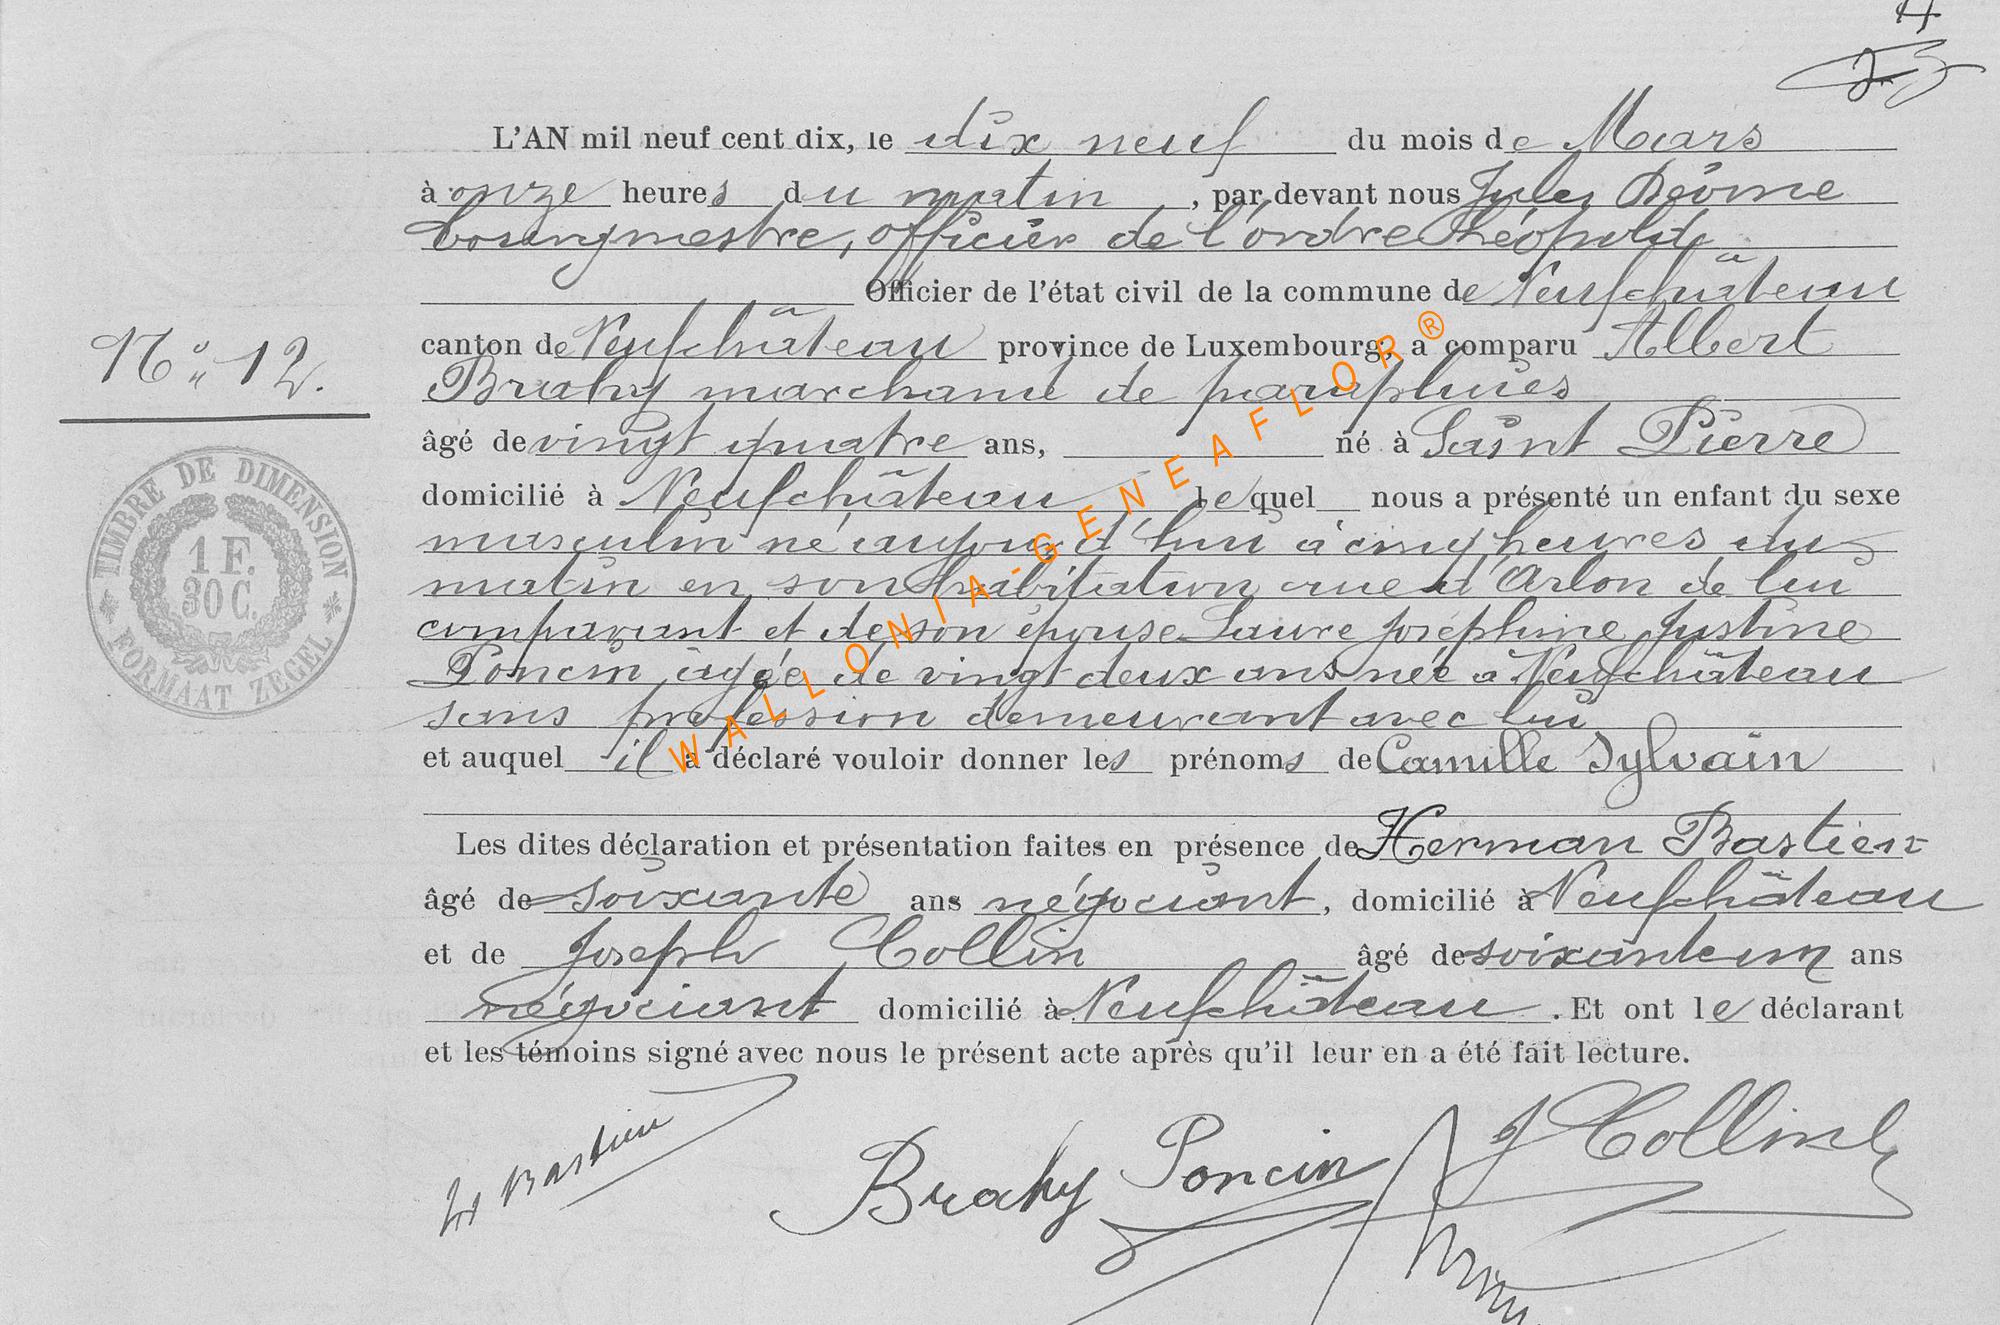 4
L'AN mil neuf cent dix, le dix neuf du mois de Mars
à onze heures du matin, par devant nous Jules
bourgmestre, officier de l'ordre Léopold
Officier de l'état civil de la commune de Neufchâteau
canton de Neufchâteau province de Luxembourg, a comparu Albert
Brahy marchand de parapluies
âgé de vingt quatre ans, né à Saint Pierre
domicilié à Neufchâteau lequel nous a présenté un enfant du sexe
masculin né aujourd'hui à cinq heures du
matin en son habitation rue d'Arlon de lui
comparant et de son épouse Laure Joséphine Justine
Poncin âgée de vingt deux ans née à Neufchâteau
sans profession demeurant avec lui
et auquel il a déclaré vouloir donner les prénoms de Camille Sylvain
Les dites déclaration et présentation faites en présence de Herman Bastien
âgé de soixante ans négociant, domicilié à Neufchâteau
et de Joseph Collin âgé de soixante un ans
négociant domicilié à Neufchâteau. Et ont le déclarant
et les témoins signé avec nous le présent acte après qu'il leur en a été fait lecture.
H Bastien
Brahy Poncin
J Collin
No 12.
TIMBRE DE DIMENSION
1 F.
30 C.
FORMAAT ZEGEL
WALLONIA-GENEAFLOR®